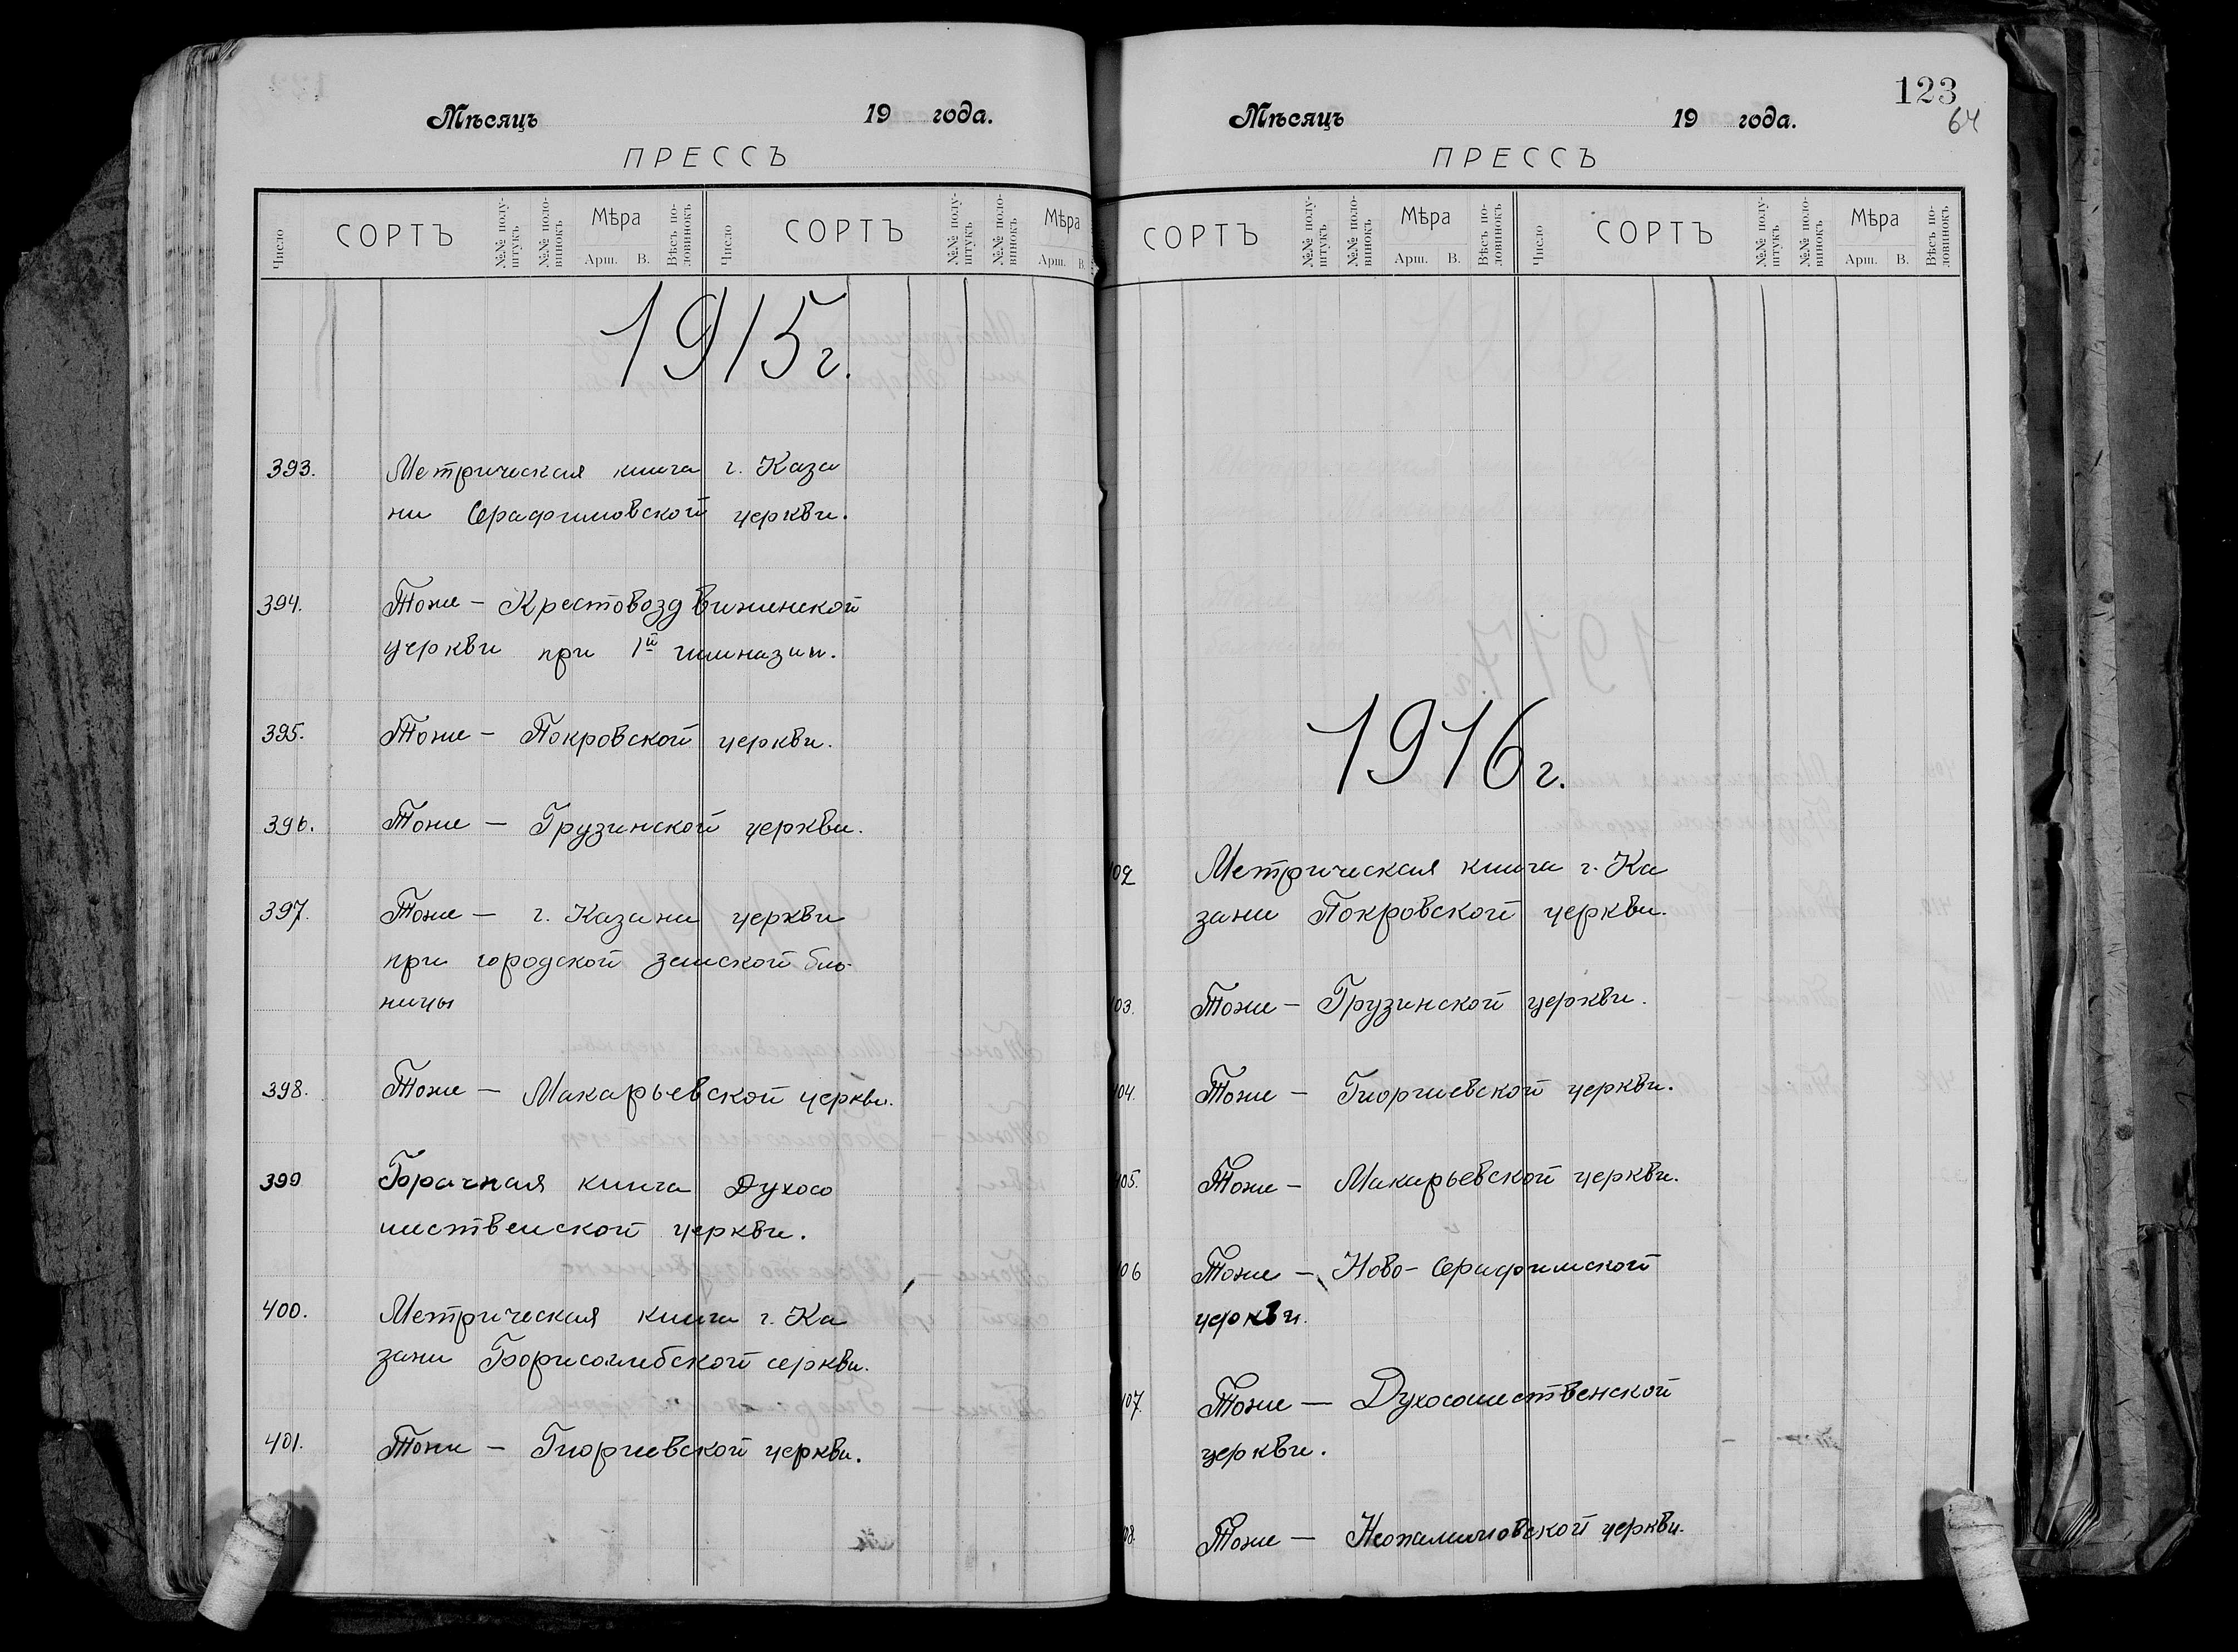 Мѣсяцъ 19 года.
ПРЕССЪ
Число СОРТЪ №№ полу-штукъ №№ поло-винокъ Мѣра Арш. В. Вѣсъ по-ловинокъ Число СОРТЪ №№ полу-штукъ №№ поло-винокъ Мѣра Арш. В.
1915 г.
393. Метрическая книга г. Каза
ни Серафимовской церкви.
394. Тоже - Крестовоздвиженской
церкви при 1й гимназии.
395. Тоже - Покровской церкви.
396. Тоже - Грузинской церкви.
397. Тоже - г. Казани церкви
при городской земской боль-
ницы
398. Тоже - Макарьевской церкви.
399 Брачная книга Духосо
шественской церкви.
400. Метрическая книга г. Ка
зани Борисоглебской церкви.
401. Тоже - Георгиевской церкви.
123
64
Мѣсяцъ 19 года.
ПРЕССЪ
СОРТЪ №№ полу-штукъ №№ поло-винокъ Мѣра Арш. В. Вѣсъ по-ловинокъ Число СОРТЪ №№ полу-штукъ №№ поло-винокъ Мѣра Арш. В. Вѣсъ по-ловинокъ
1916 г.
402 Метрическая книга г. Ка
зани Покровской церкви.
403. Тоже - Грузинской церкви.
404. Тоже - Георгиевской церкви.
405. Тоже - Макарьевской церкви.
406 Тоже - Ново-Серафимской
церкви.
407. Тоже - Духосошественской
церкви.
408. Тоже - церкви.